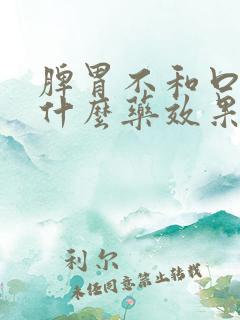 脾胃不和口
什麼藥效果
利尔
未经同意禁止转载